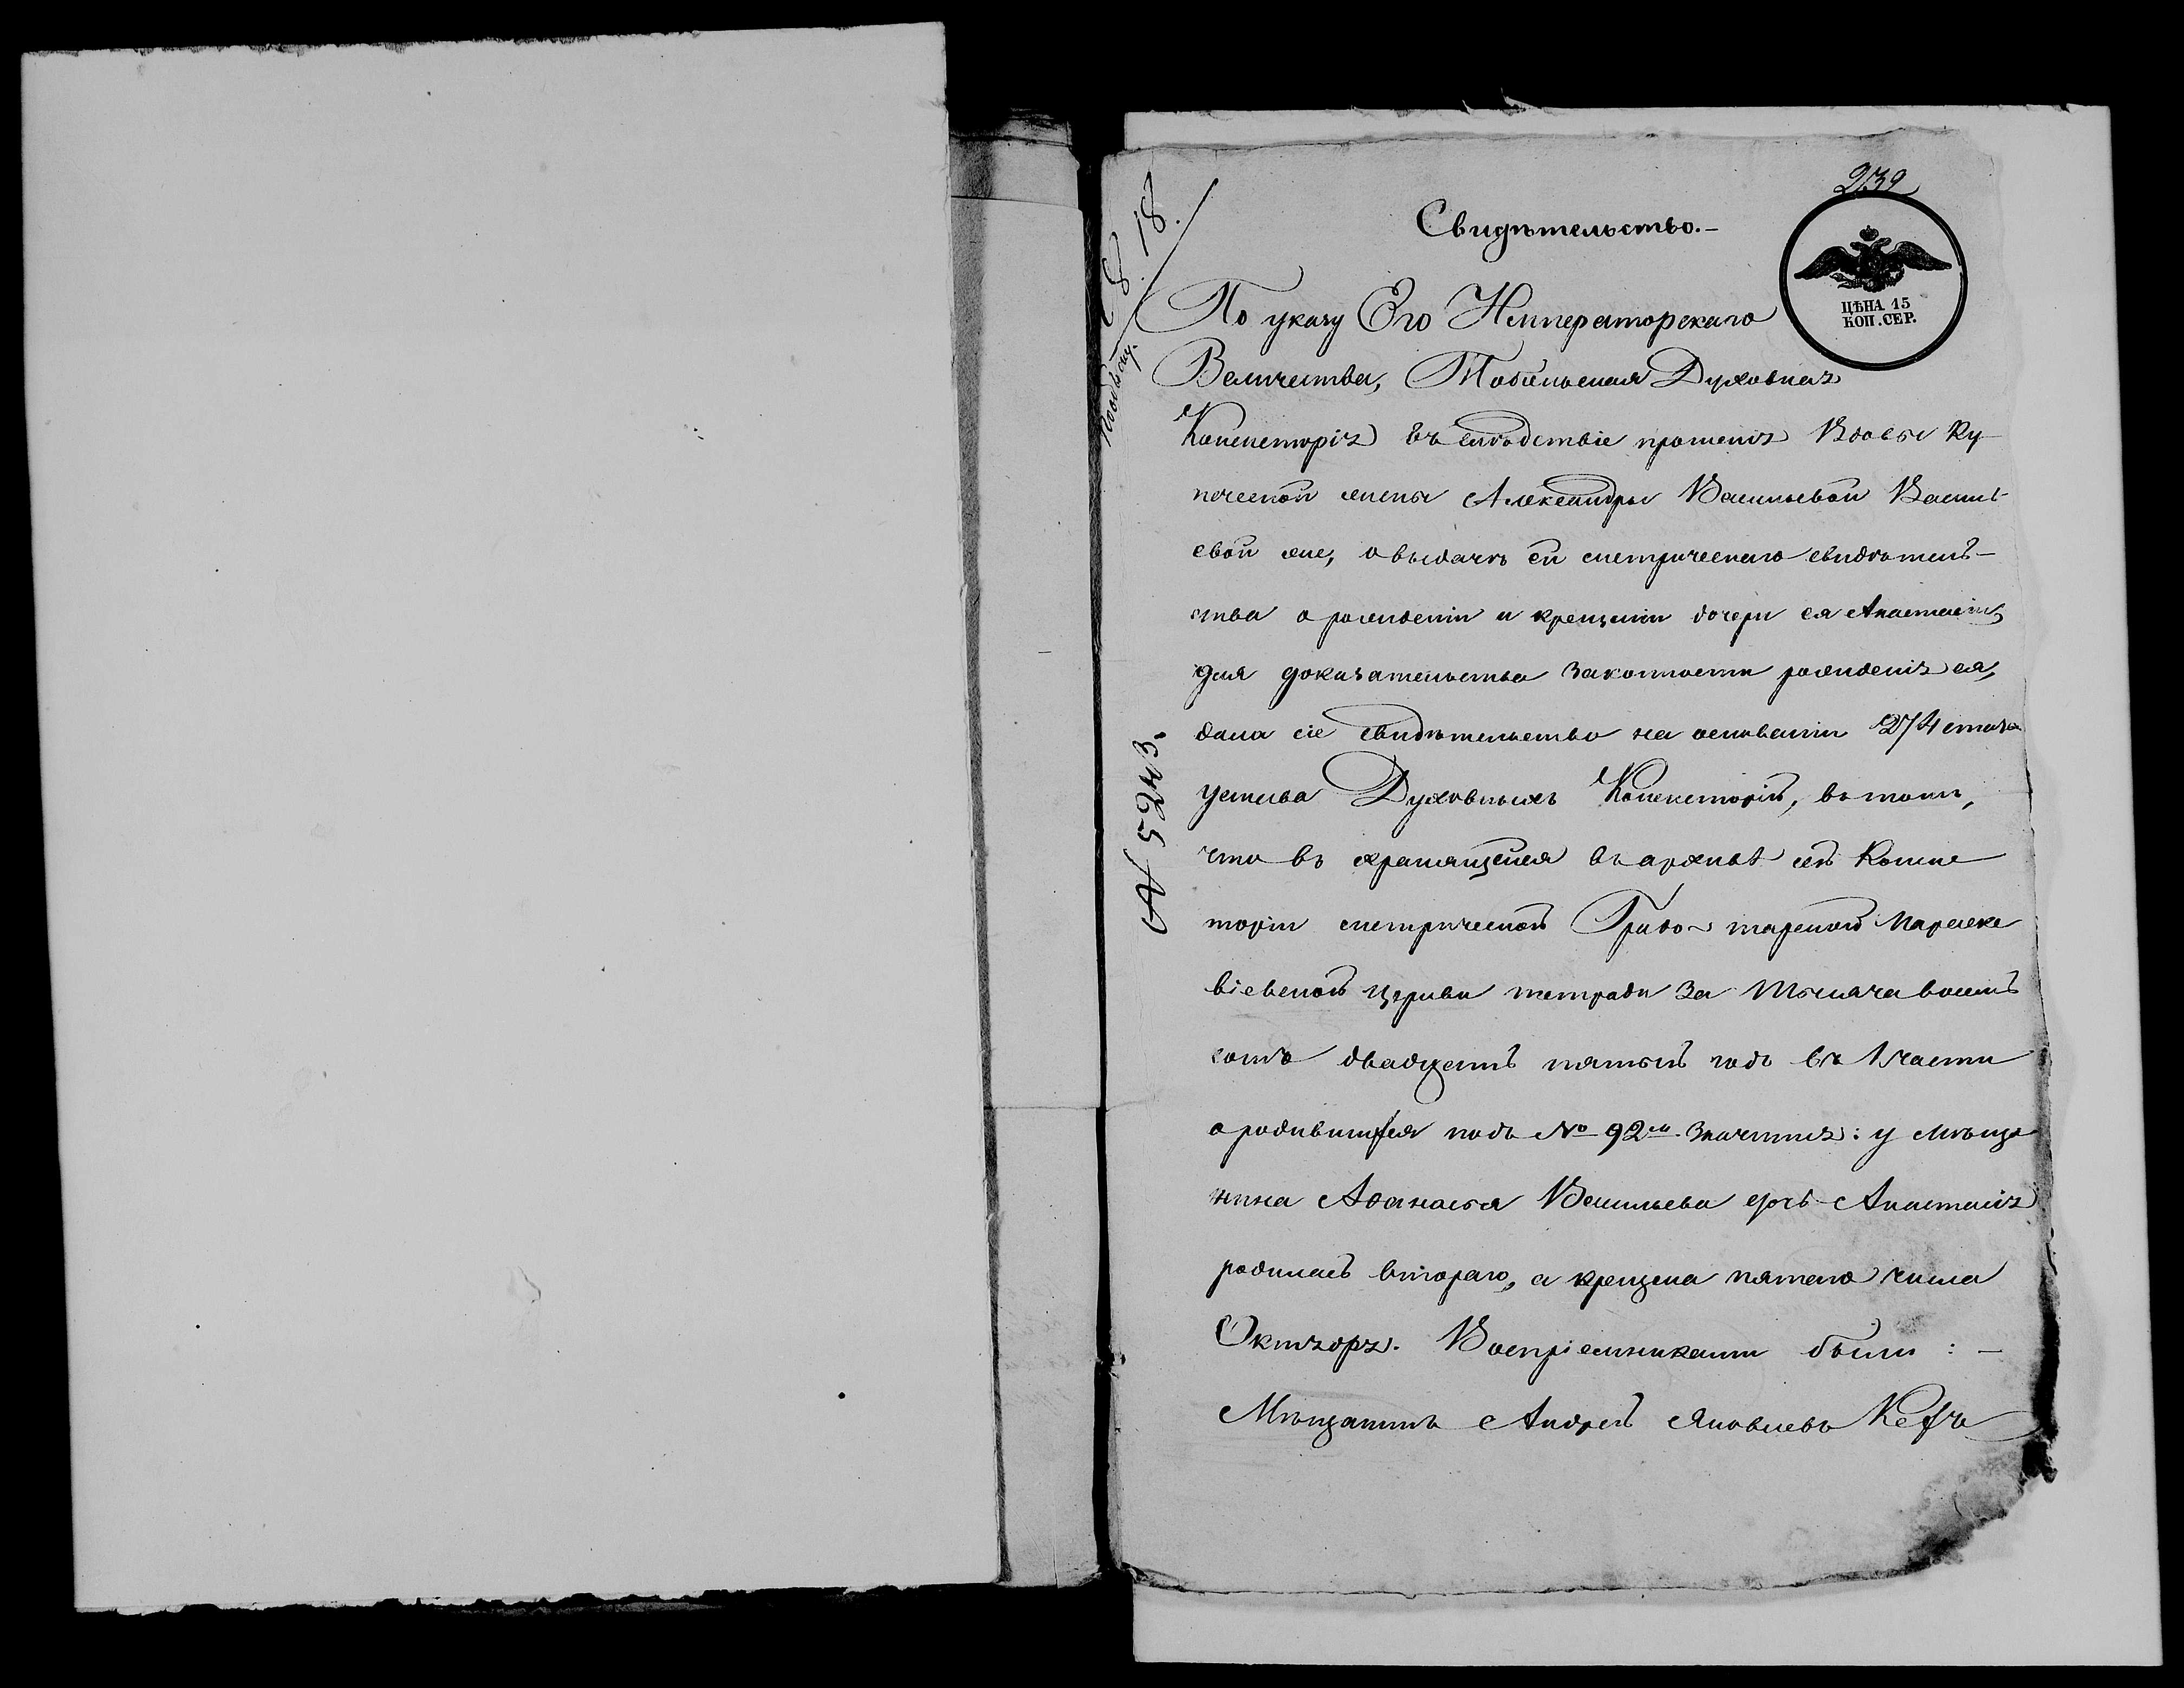 239
Свидѣтельство.-
ЦѢНА 15
КОП. СЕР.
По указу Его Императорскаго
Величества, Тобольская Духовная
Консисторія въ слѣдствіе прошенія Вдовы Ку-
печеской жены Александры Васильевой Василь-
евой же, о выдачѣ ей метрическаго свидѣтель-
ства о рожденіи и крещеніи дочери ея Анастасіи,
для доказательства законности рожденія ея,
дала сіе свидѣтельство на основаніи 274 статьи
устава Духовныхъ Консисторій, въ томъ,
что въ хранящейся въ архивѣ сей Консис
торіи метрической Градо-тарской Параске
віевской церкви тетради за тысяча восемь
сотъ двадцать пятый годъ въ 1 части
о родившихся подъ № 92м. значится: у мѣща
нина Аѳанасья Васильева дочь Анастасія
родилась втораго, а крещена пятаго числа
Октября. Воспріемниками были: -
Мѣщанинъ Андрей Яковлевъ
№ 5243.
18.